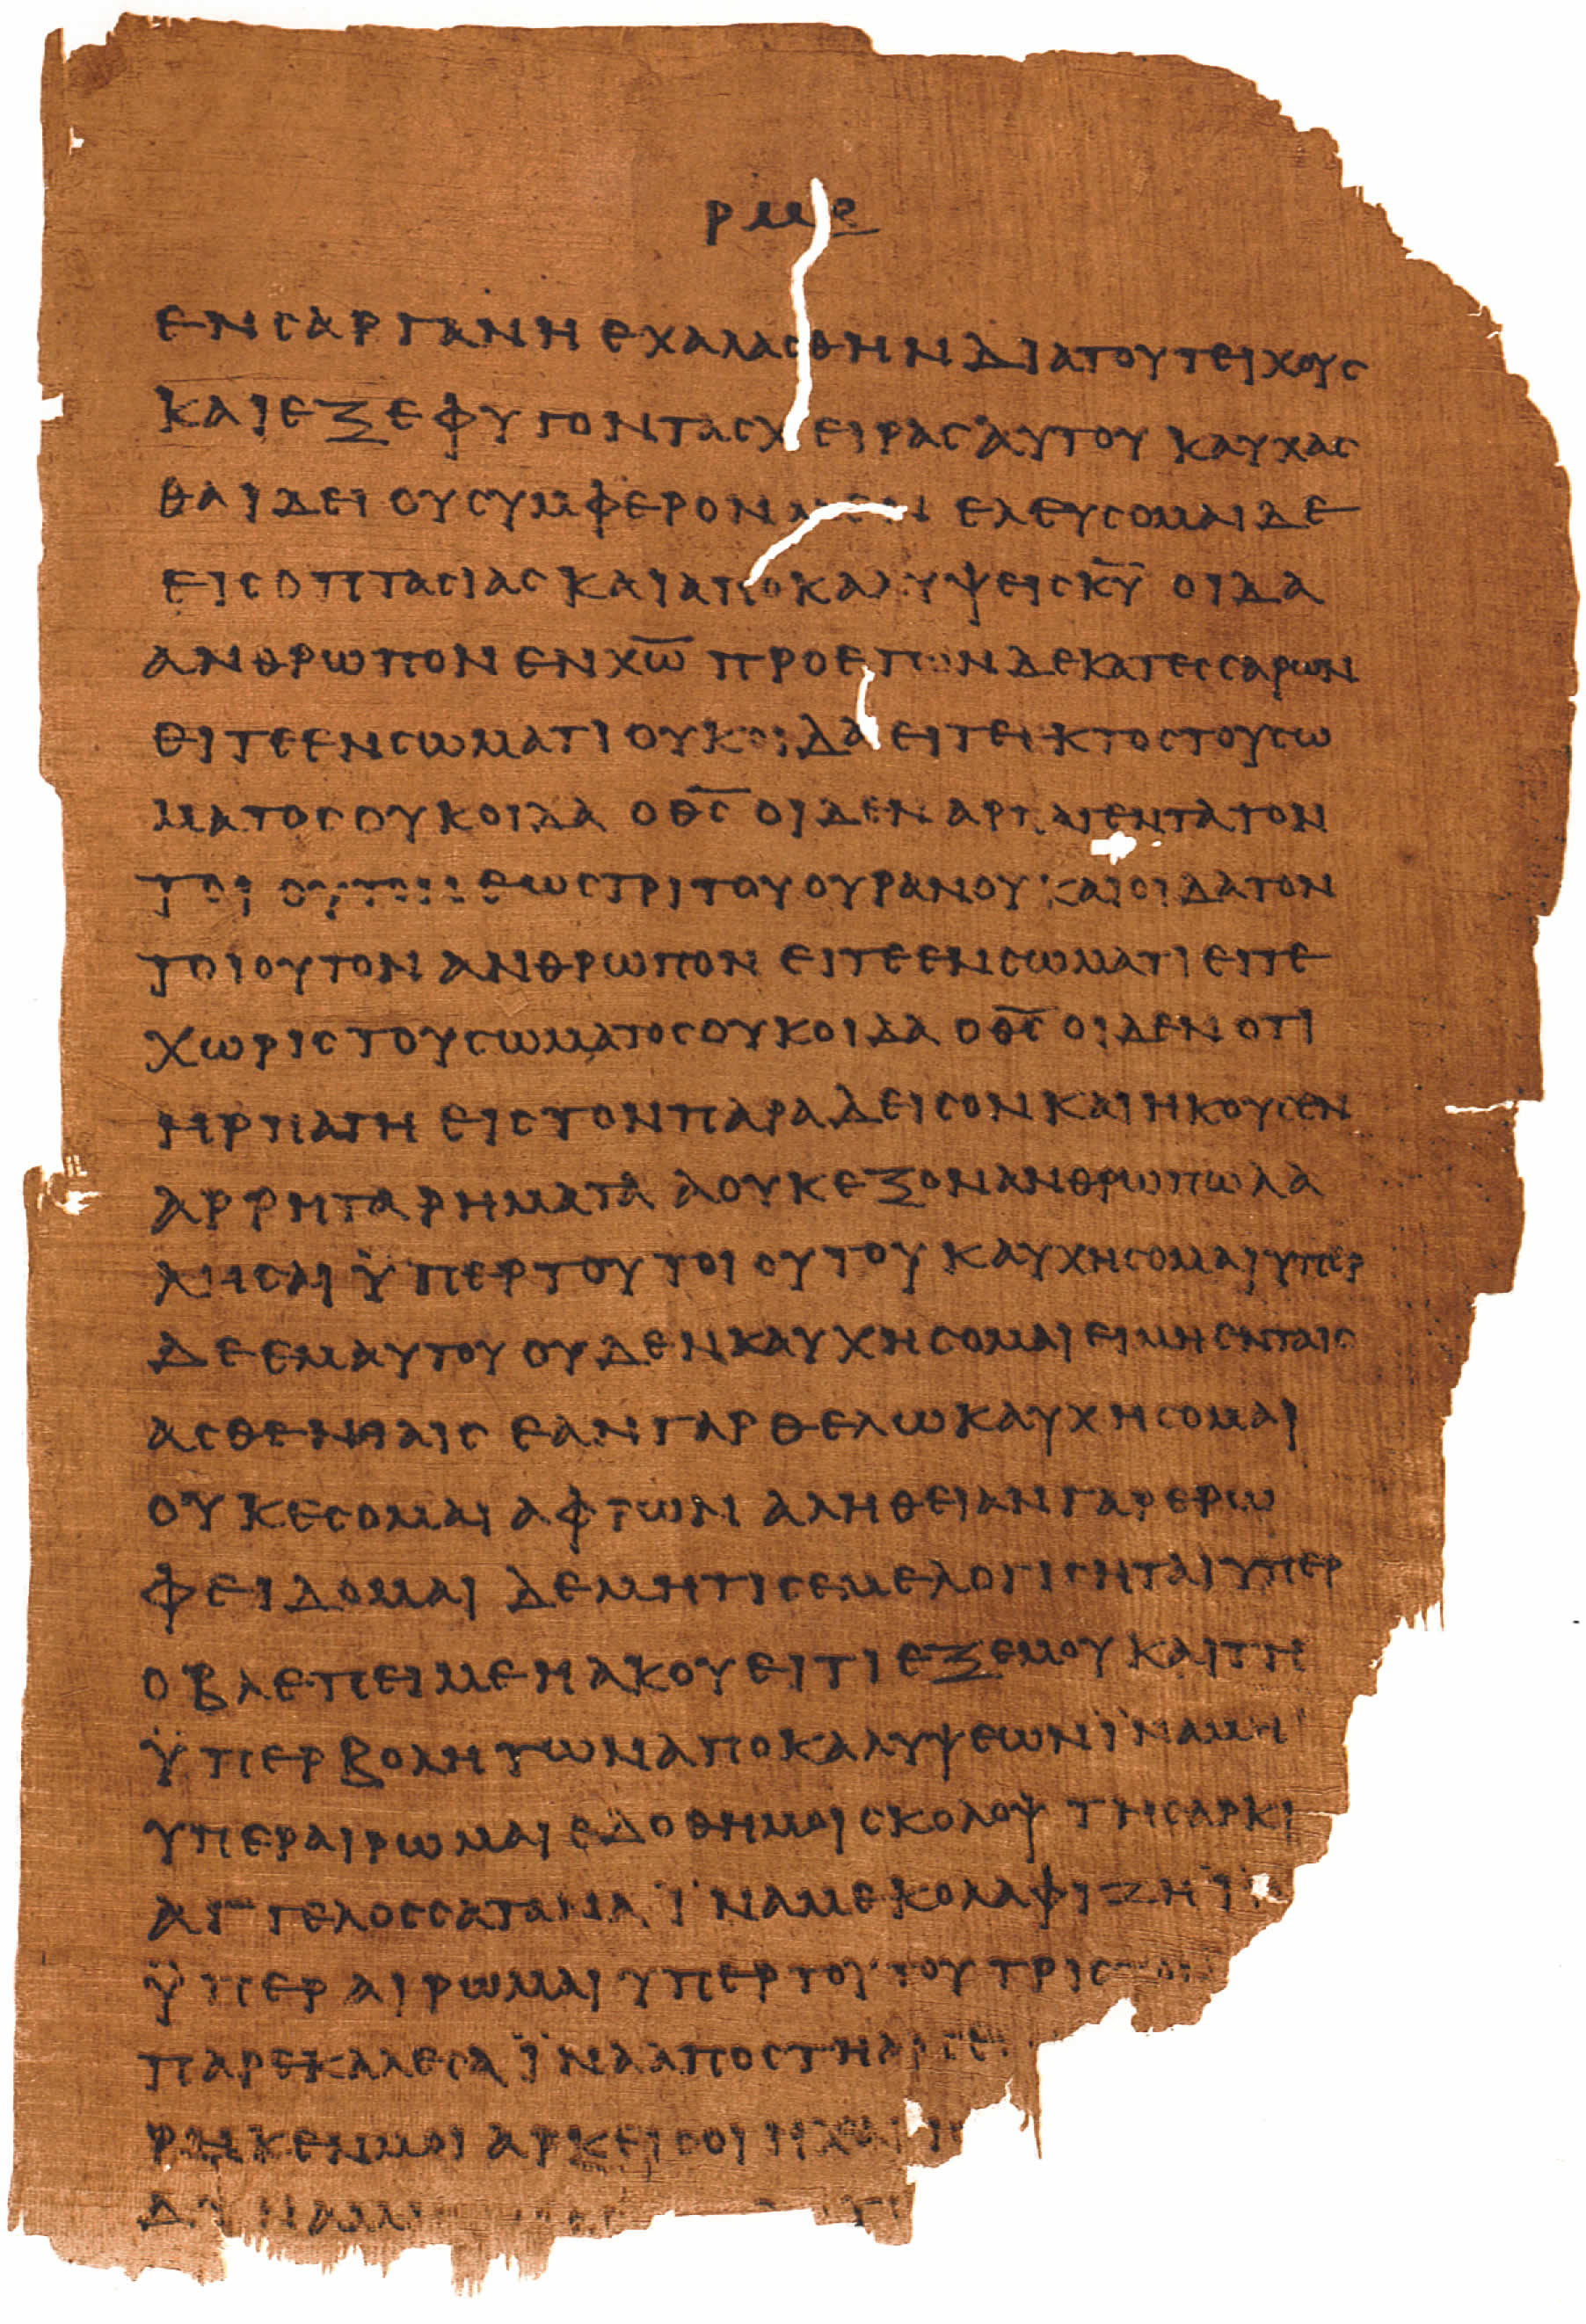 ρμε
ενσαργανηεχαλασθηνδιατουτειχους
καιεξεφυγονταςχειραςαυτου καυχας
θαιδει ουσυμφερονμεν ελευσομαιδε
ειςοπτασιας καιαποκαλυψειςκ̅υ̅ οιδα
ανθρωπον ενχ̅ω̅ προετωνδεκατεσσαρων
ειτεενσωματιουκοιδα ειτεεκτοςτουσω
ματοςουκοιδα οθ̅ς̅ οιδεν αρπαγεντατον
τοιουτον εωςτριτουουρανου καιοιδατον
τοιουτον ανθρωπον ειτεενσωματιειτε
χωριςτουσωματοςουκοιδα οθ̅ς̅ οιδενοτι
ηρπαγη ειςτονπαραδεισονκαιηκουσεν
αρρηταρηματα αουκεξονανθρωπωλα
λησαι ϋπερτουτοιουτου καυχησομαιυπερ
δεεμαυτου ουδενκαυχησομαι ειμηενταις
ασθενειαις εανγαρθελωκαυχησομαι
ουκεσομαι αφρων αληθειανγαρερω
φειδομαι δεμητιςεμελογισηταιυπερ
οβλεπειμεηακουειτιεξεμουκαιτη
ϋπερβολητωναποκαλυψεωνϊναμη
υπεραιρωμαιεδοθημοισκολοψ τησαρκι
αγγελοςσατανα ϊναμεκολαφιζηϊ
ϋπεραιρωμαιυπερτουτουτρις
παρεκαλεσαϊνααποστηα
ρηκενμοι αρκεισοιηχα
δυναμι